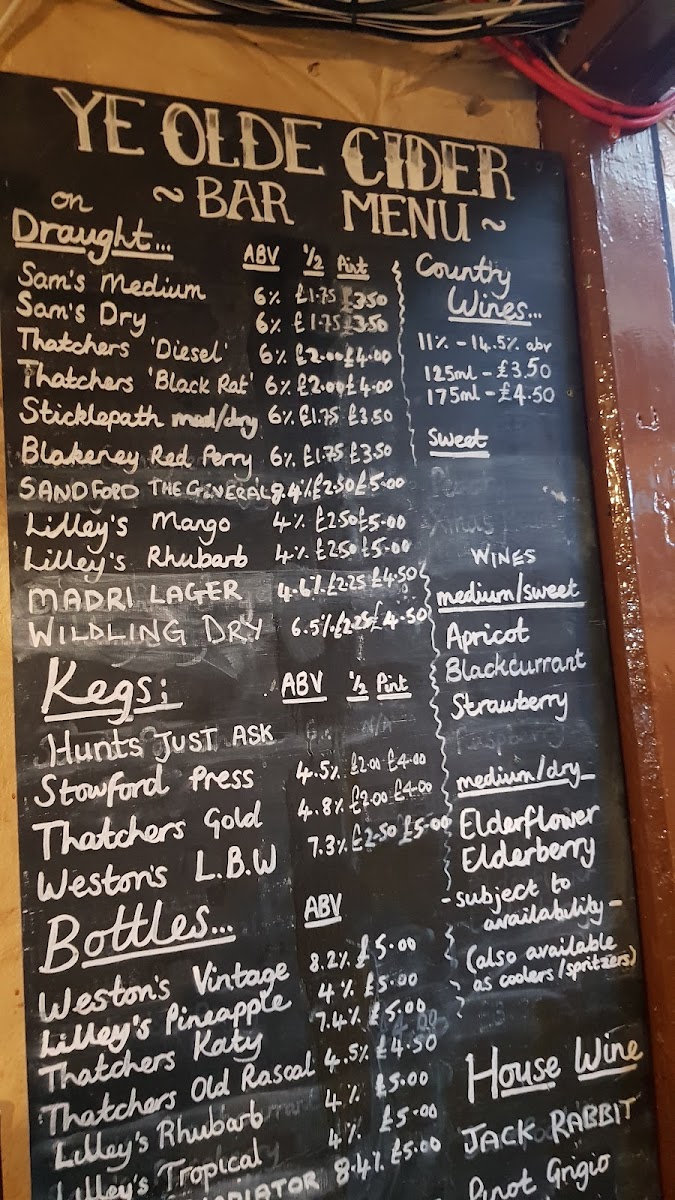 YE OLDE CIDER
~ BAR MENU ~
on
Draught... ABV ½ Pint
Sam's Medium 6% £1.75 £3.50
Sam's Dry 6% £1.75 £3.50
Thatchers 'Diesel' 6% £2.00 £4.00
Thatchers 'Black Rat' 6% £2.00 £4.00
Sticklepath med/dry 6% £1.75 £3.50
Blakeney Red Perry 6% £1.75 £3.50
SANDFORD THE GENERAL 8.4% £2.50 £5.00
Lilley's Mango 4% £2.50 £5.00
Lilley's Rhubarb 4% £2.50 £5.00
MADRI LAGER 4.6% £2.25 £4.50
WILDLING DRY 6.5% £2.25 £4.50
Kegs: ABV ½ Pint
Hunts JUST ASK N/A
Stowford Press 4.5% £2.00 £4.00
Thatchers Gold 4.8% £2.00 £4.00
Weston's L.B.W 7.3% £2.50 £5.00
Bottles... ABV
Weston's Vintage 8.2% £5.00
Lilley's Pineapple 4% £5.00
Thatchers Katy 7.4% £5.00
Thatchers Old Rascal 4.5% £4.50
Lilley's Rhubarb 4% £5.00
Lilley's Tropical 4% £5.00
8.4% £5.00
Country
Wines...
11% - 14.5% abv
125ml - £3.50
175ml - £4.50
Sweet
WINES
medium/sweet
Apricot
Blackcurrant
Strawberry
Raspberry
medium/dry
Elderflower
Elderberry
- subject to
availability -
(also available
as coolers/spritzers)
House Wine
JACK RABBIT
Pinot Grigio